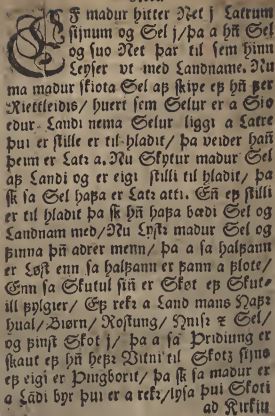 EF madur hitter Net j Latrum
sijnum og Sel j/ þa a hñ Sel
og suo Net þar til sem hinn
Leyser vt med Landname. Nu
ma madur skiota Sel aß skipe eß hñ ẞer
Riettleidis/ huert sem Selur er a Sio
edur Landi nema Selur liggi a Latre
þui er stille er til hladit/ þa veider hañ
þeim er Latr a. Nu Skytur madur Sel
aß Landi og er eigi stilli til hladit/ þa
sk sa Sel haßa er Latr atti. Eñ eß stilli
er til hladit þa sk hñ haßa bædi Sel og
Landnam med/ Nu Lystr madur Sel og
ßinna þñ adrer menn/ þa a sa halßann
er Løst enn sa halßann er ßann a ßlote/
Enn sa Skutul sin̄ er Skøt eß Skut-
ill ßylgier/ Eß rekr a Land mans Naßr
hual/ Biørn/ Rostung/ Nnisr ꝛ Sel/
og ßinst Skot j/ þa a sa Þridiung er
skaut eß hñ heßr Vitni til Skotz sijns
eß eigi er Þingborit/ þa sk sa madur er
a Lādi byr þui er a rekr/ lysa þui Skoti
ad Kirkiu